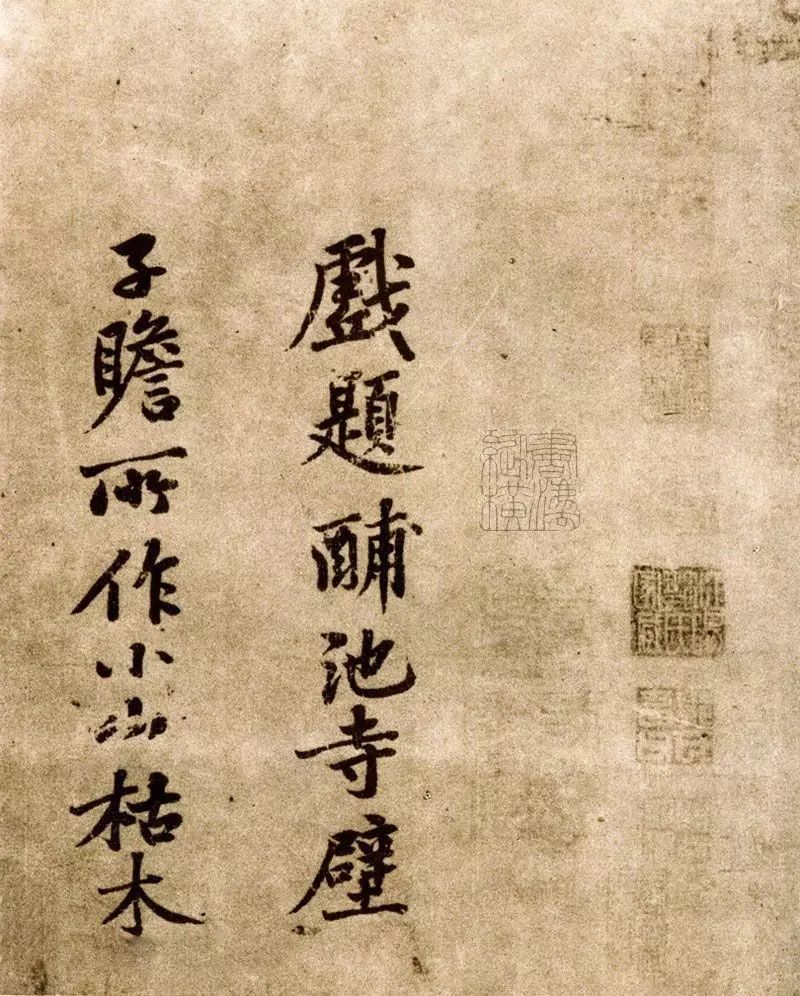 戲題䣯池寺壁
子瞻所作小山枯木